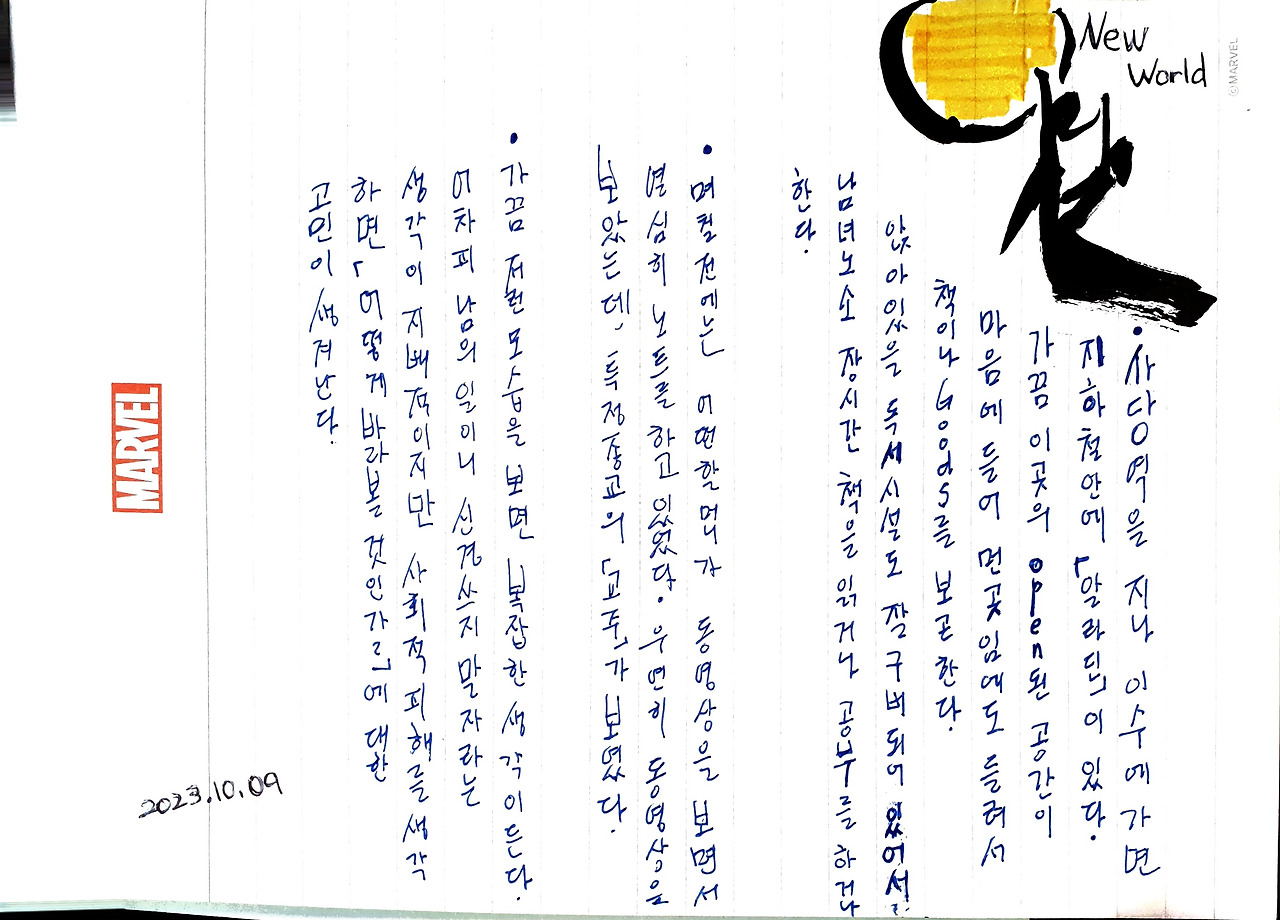 New
World
©MARVEL
• 사당역을 지나 이수에 가면
지하철안에 「알라딘」이 있다.
가끔 이곳의 open된 공간이
마음에 들어 먼곳임에도 들려서
책이나 Goods를 보곤한다.
앉아있을 독서시설도 잘 구비되어 있어서
남녀노소 장시간 책을 읽거나 공부를 하거나
한다.
• 며칠전에는 어떤할머니가 동영상을 보면서
열심히 노트를 하고 있었다. 우연히 동영상을
보았는데, 특정종교의 「교주」가 보였다.
• 가끔 저런모습을 보면 복잡한 생각이든다.
어차피 남의 일이니 신경쓰지 말자라는
생각이 지배적이지만 사회적 피해를 생각
하면 「어떻게 바라볼 것인가?」에 대한
고민이 생겨난다.
MARVEL
2023.10.09